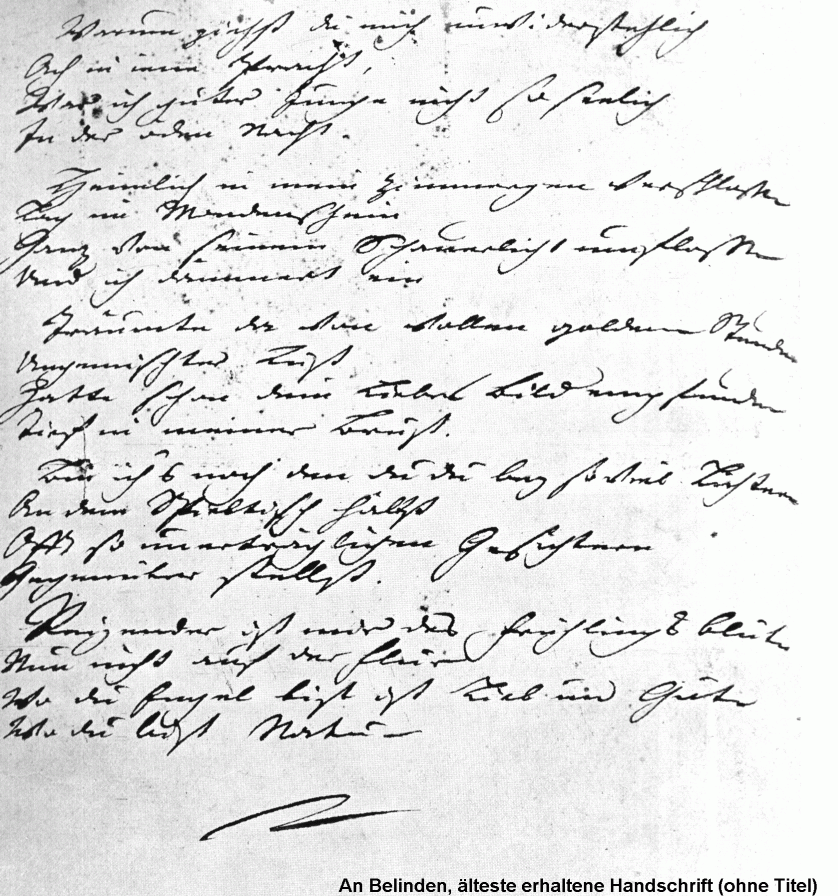 Warum ziehst du mich unwiderstehlich
Ach in iene Pracht,
War ich guter Junge nicht so seelich
In der öden Nacht.
Heimlich in mein Zimmergen verschlossen
Lag im Mondenschein
Ganz von seinem Schauerlicht umflossen
Und ich dämmert ein
Träumte da von vollen goldnen Stunden
Ungemischter Lust
Hatte schon dein liebes Bild empfunden
Tief in meiner Brust.
Bin ich's noch den du bey so viel Lichtern
An dem Spieltisch hältst
Offt so unerträglichen Gesichtern
Gegenüber stellst.
Reizender ist mir des Frühlings Blüte
Nun nicht auf der Flur
Wo du Engel bist ist Lieb und Güte
Wo du bist Natur
An Belinden, älteste erhaltene Handschrift (ohne Titel)